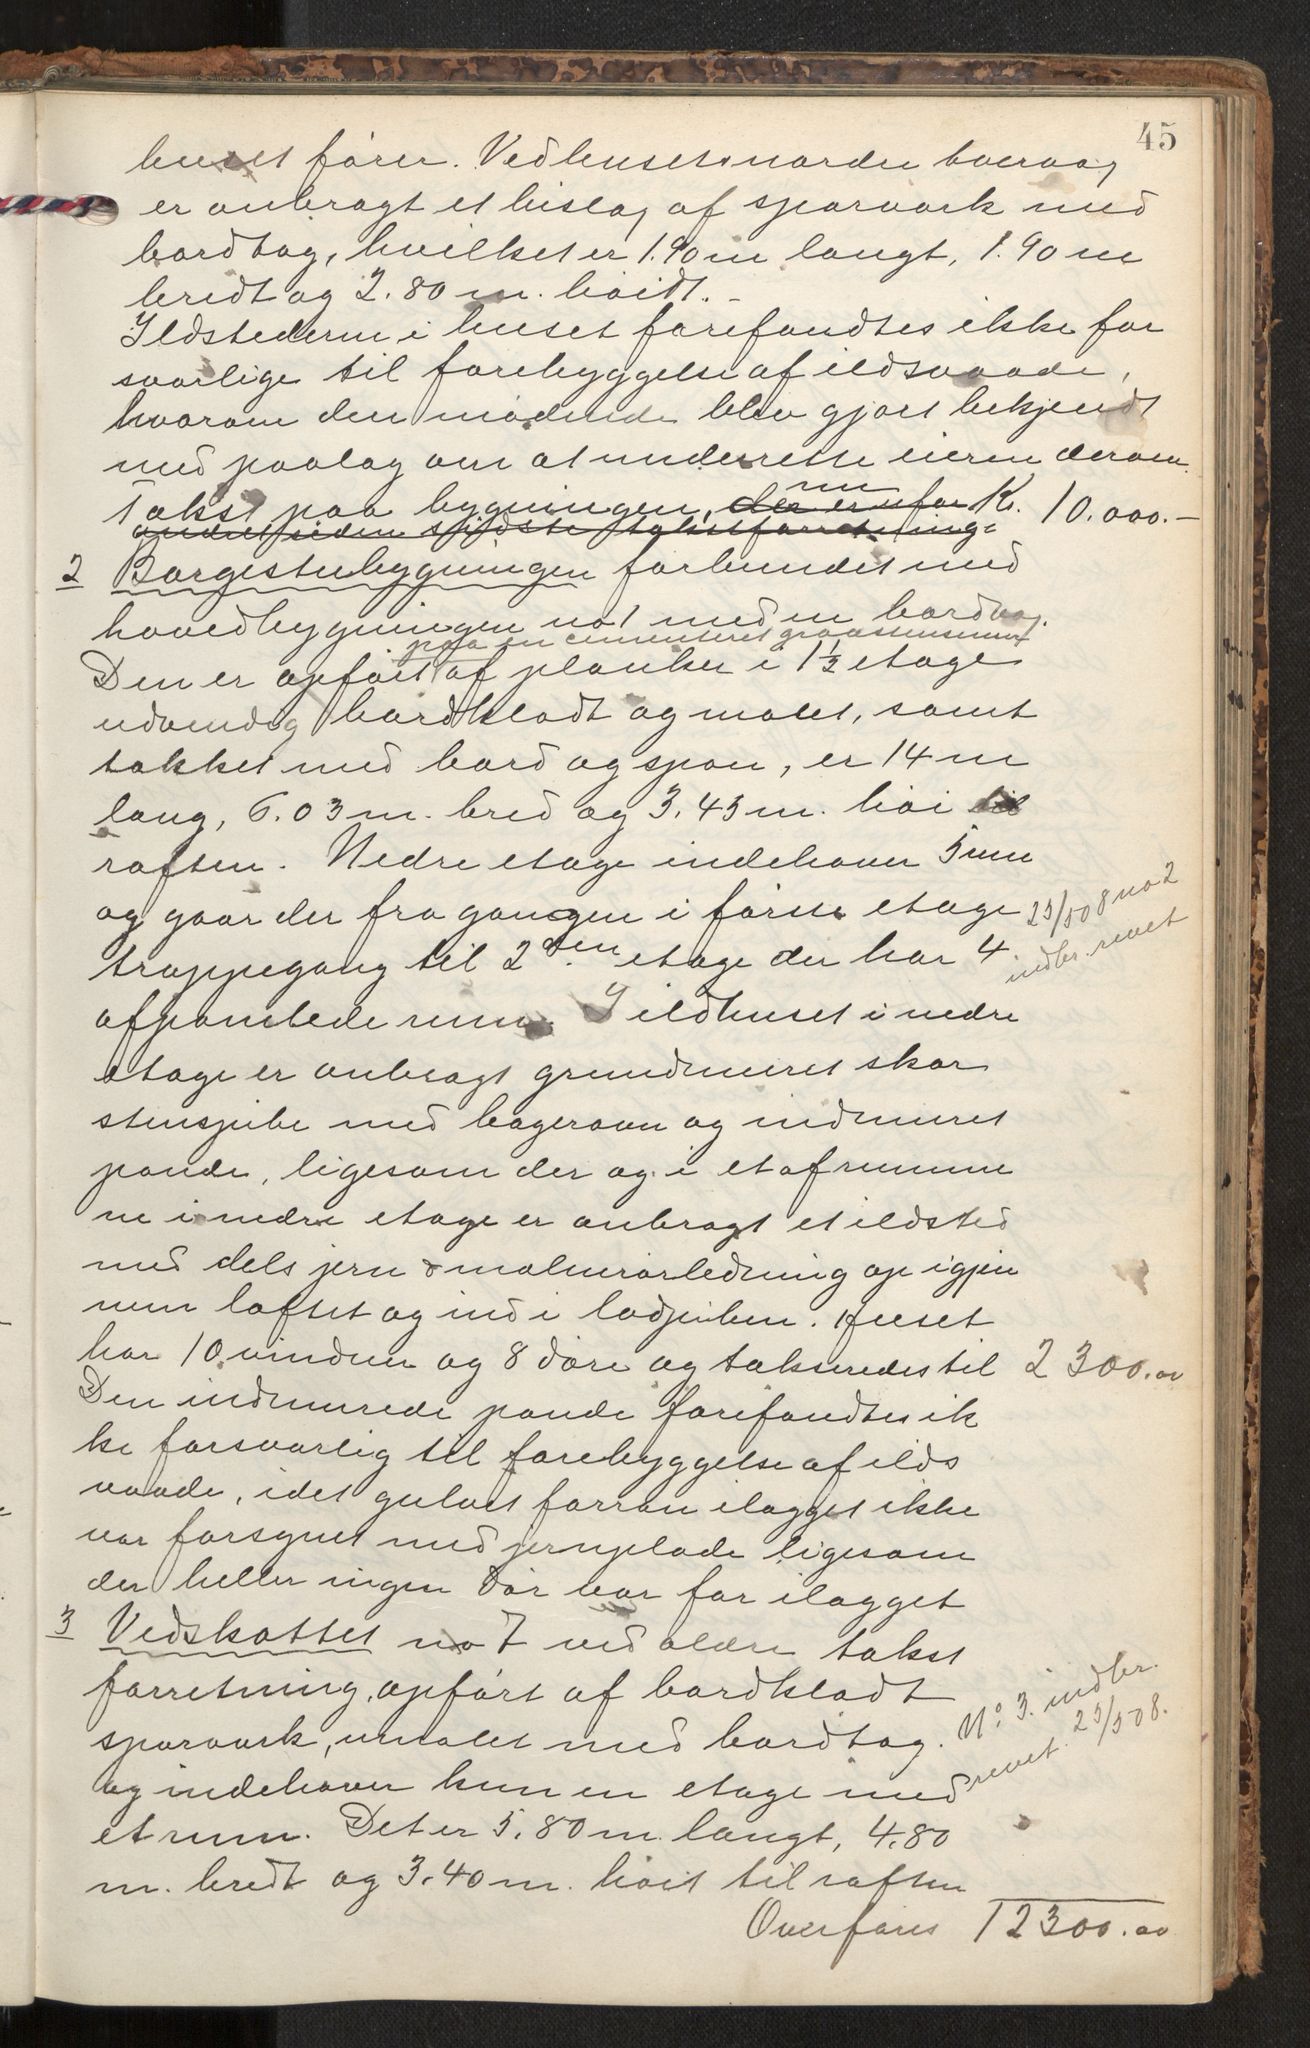 45
huset fører. Vedhusets nordre tvervæg
er anbragt et bislag af sparværk med
bordtag, hvilket er 1.90 m langt, 1.90 m
bredt og 2.80 m. høidt. -
Ildstederne i huset forefandtes ikke for
svarlige til forebyggelse af ildsvaade,
hvorom den mødende blev gjort bekjendt
med paalæg om at underrette eieren derom.
nu
Takst paa bygningen, der er ufor Kr. 10.000.-
andret siden sidste takstforretning.
2 Borgestuebygningen forbundet med
hovedbygningen no 1 med en bordvæg.
paa en cementeret graastensmur
Den er opført af planker i 1½ etage
udvendig bordklædt og malet, samt
tækket med bord og spon, er 14 m
lang, 6.03 m. bred og 3.43 m. høi til
raften. Nedre etage indehaver 5 rum
og gaar der fra gangen i første etage
25/5 08 no 2
indbr. revet
trappegang til 2den etage der har 4
afpanelede rum. I ildhuset i nedre
etage er anbragt grundmuret skor
stenspibe med bagerovn og indmuret
pande, ligesom der og i et af rumme
ne i nedre etage er anbragt et ildsted
med dels jern & malmrørledning op igjen
nem loftet og ind i lodpiben. Huset
har 10 vinduer og 8 døre og takseredes til 2 300.00
Den indmurede pande forefandtes ik
ke forsvarlig til forebyggelse af ilds
vaade, idet gulvet foran ilægget ikke
var forsynet med jernplade ligesom
der heller ingen dør var for ilægget
3 Vedskottet no 7 ved ældre takst
forretning, opført af bordklædt
sparværk, umalet med bordtag.
No 3. indbr.
revet 25/5 08.
og indehaver kun en etage med
et rum. Det er 5.80 m. langt, 4.80
m. bredt og 3.40 m. høit til raften
Overføres 12300.00